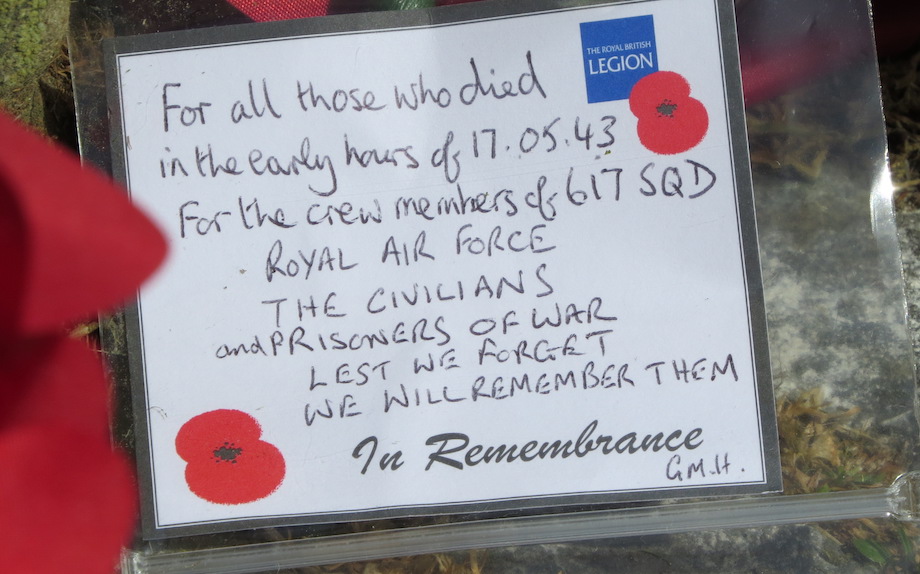 THE ROYAL BRITISH
LEGION
For all those who died
in the early hours of 17.05.43
For the crew members of 617 SQD
ROYAL AIR FORCE
THE CIVILIANS
and PRISONERS OF WAR
LEST WE FORGET
WE WILL REMEMBER THEM
In Remembrance
G.M.H.